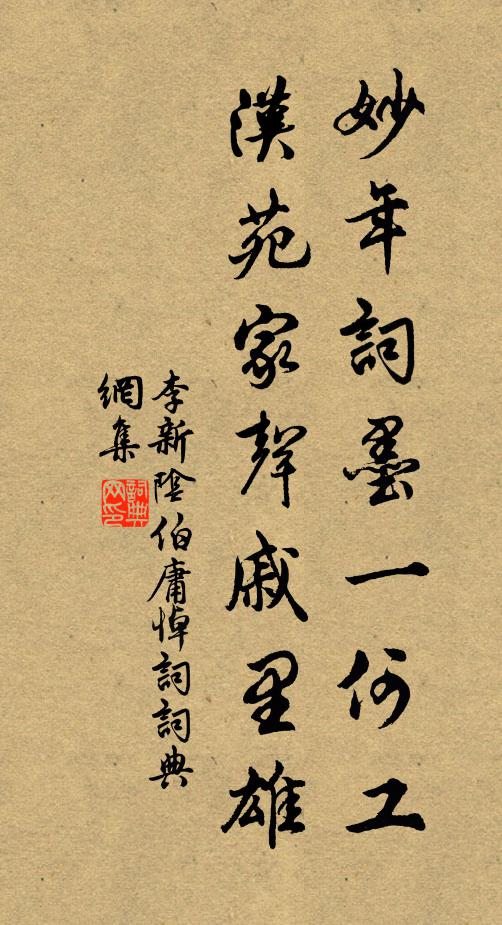 妙年詞墨一何工
漢苑家聲戚里雄
李新陰伯庸悼詞詞典
網集
詞典
网印